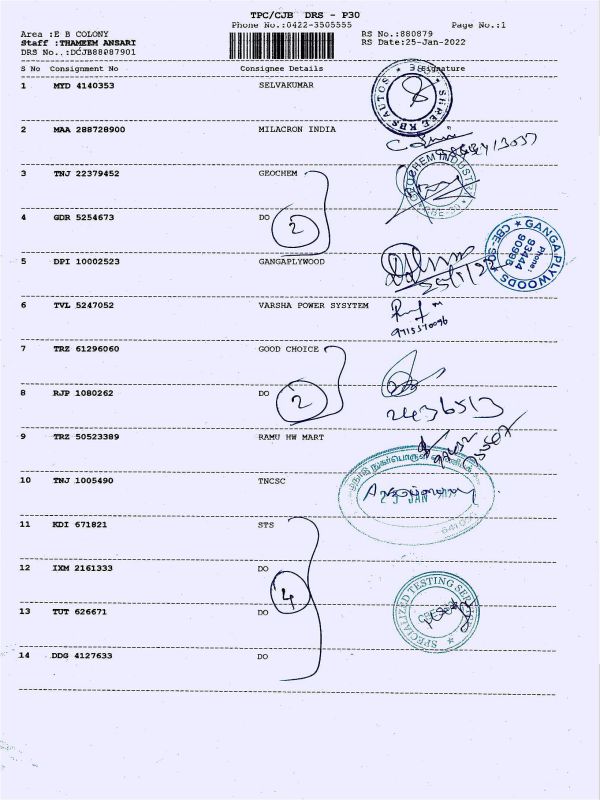 TPC/CJB DRS - P30
Phone No.:0422-3505555 Page No.:1
Area :E B COLONY
Staff :THAMEEM ANSARI
DRS No..:DCJB88087901
RS No.:880879
RS Date:25-Jan-2022
S No Consignment No Consignee Details Signature
1 MYD 4140353 SELVAKUMAR
SHREE KBS AUTOS
2 MAA 288728900 MILACRON INDIA
3 TNJ 22379452 GEOCHEM
4 GDR 5254673 DO
2
5 DPI 10002523 GANGAPLYWOOD
GANGA PLYWOODS
CBE
Phone:
93444
90995
6 TVL 5247052 VARSHA POWER SYSYTEM
9715370096
7 TRZ 61296060 GOOD CHOICE
8 RJP 1080262 DO
2
2436513
9 TRZ 50523389 RAMU HW MART
10 TNJ 1005490 TNCSC
JAN
11 KDI 671821 STS
12 IXM 2161333 DO
4
13 TUT 626671 DO
SPECIALIZED TESTING
14 DDG 4127633 DO